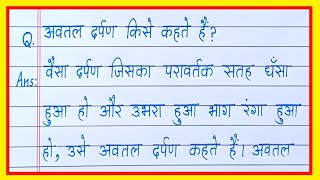 Q. अवतल दर्पण किसे कहते हैं?
Ans: वैसा दर्पण जिसका परावर्तक सतह धँसा
हुआ हो और उभरा हुआ भाग रंगा हुआ
हो, उसे अवतल दर्पण कहते हैं। अवतल